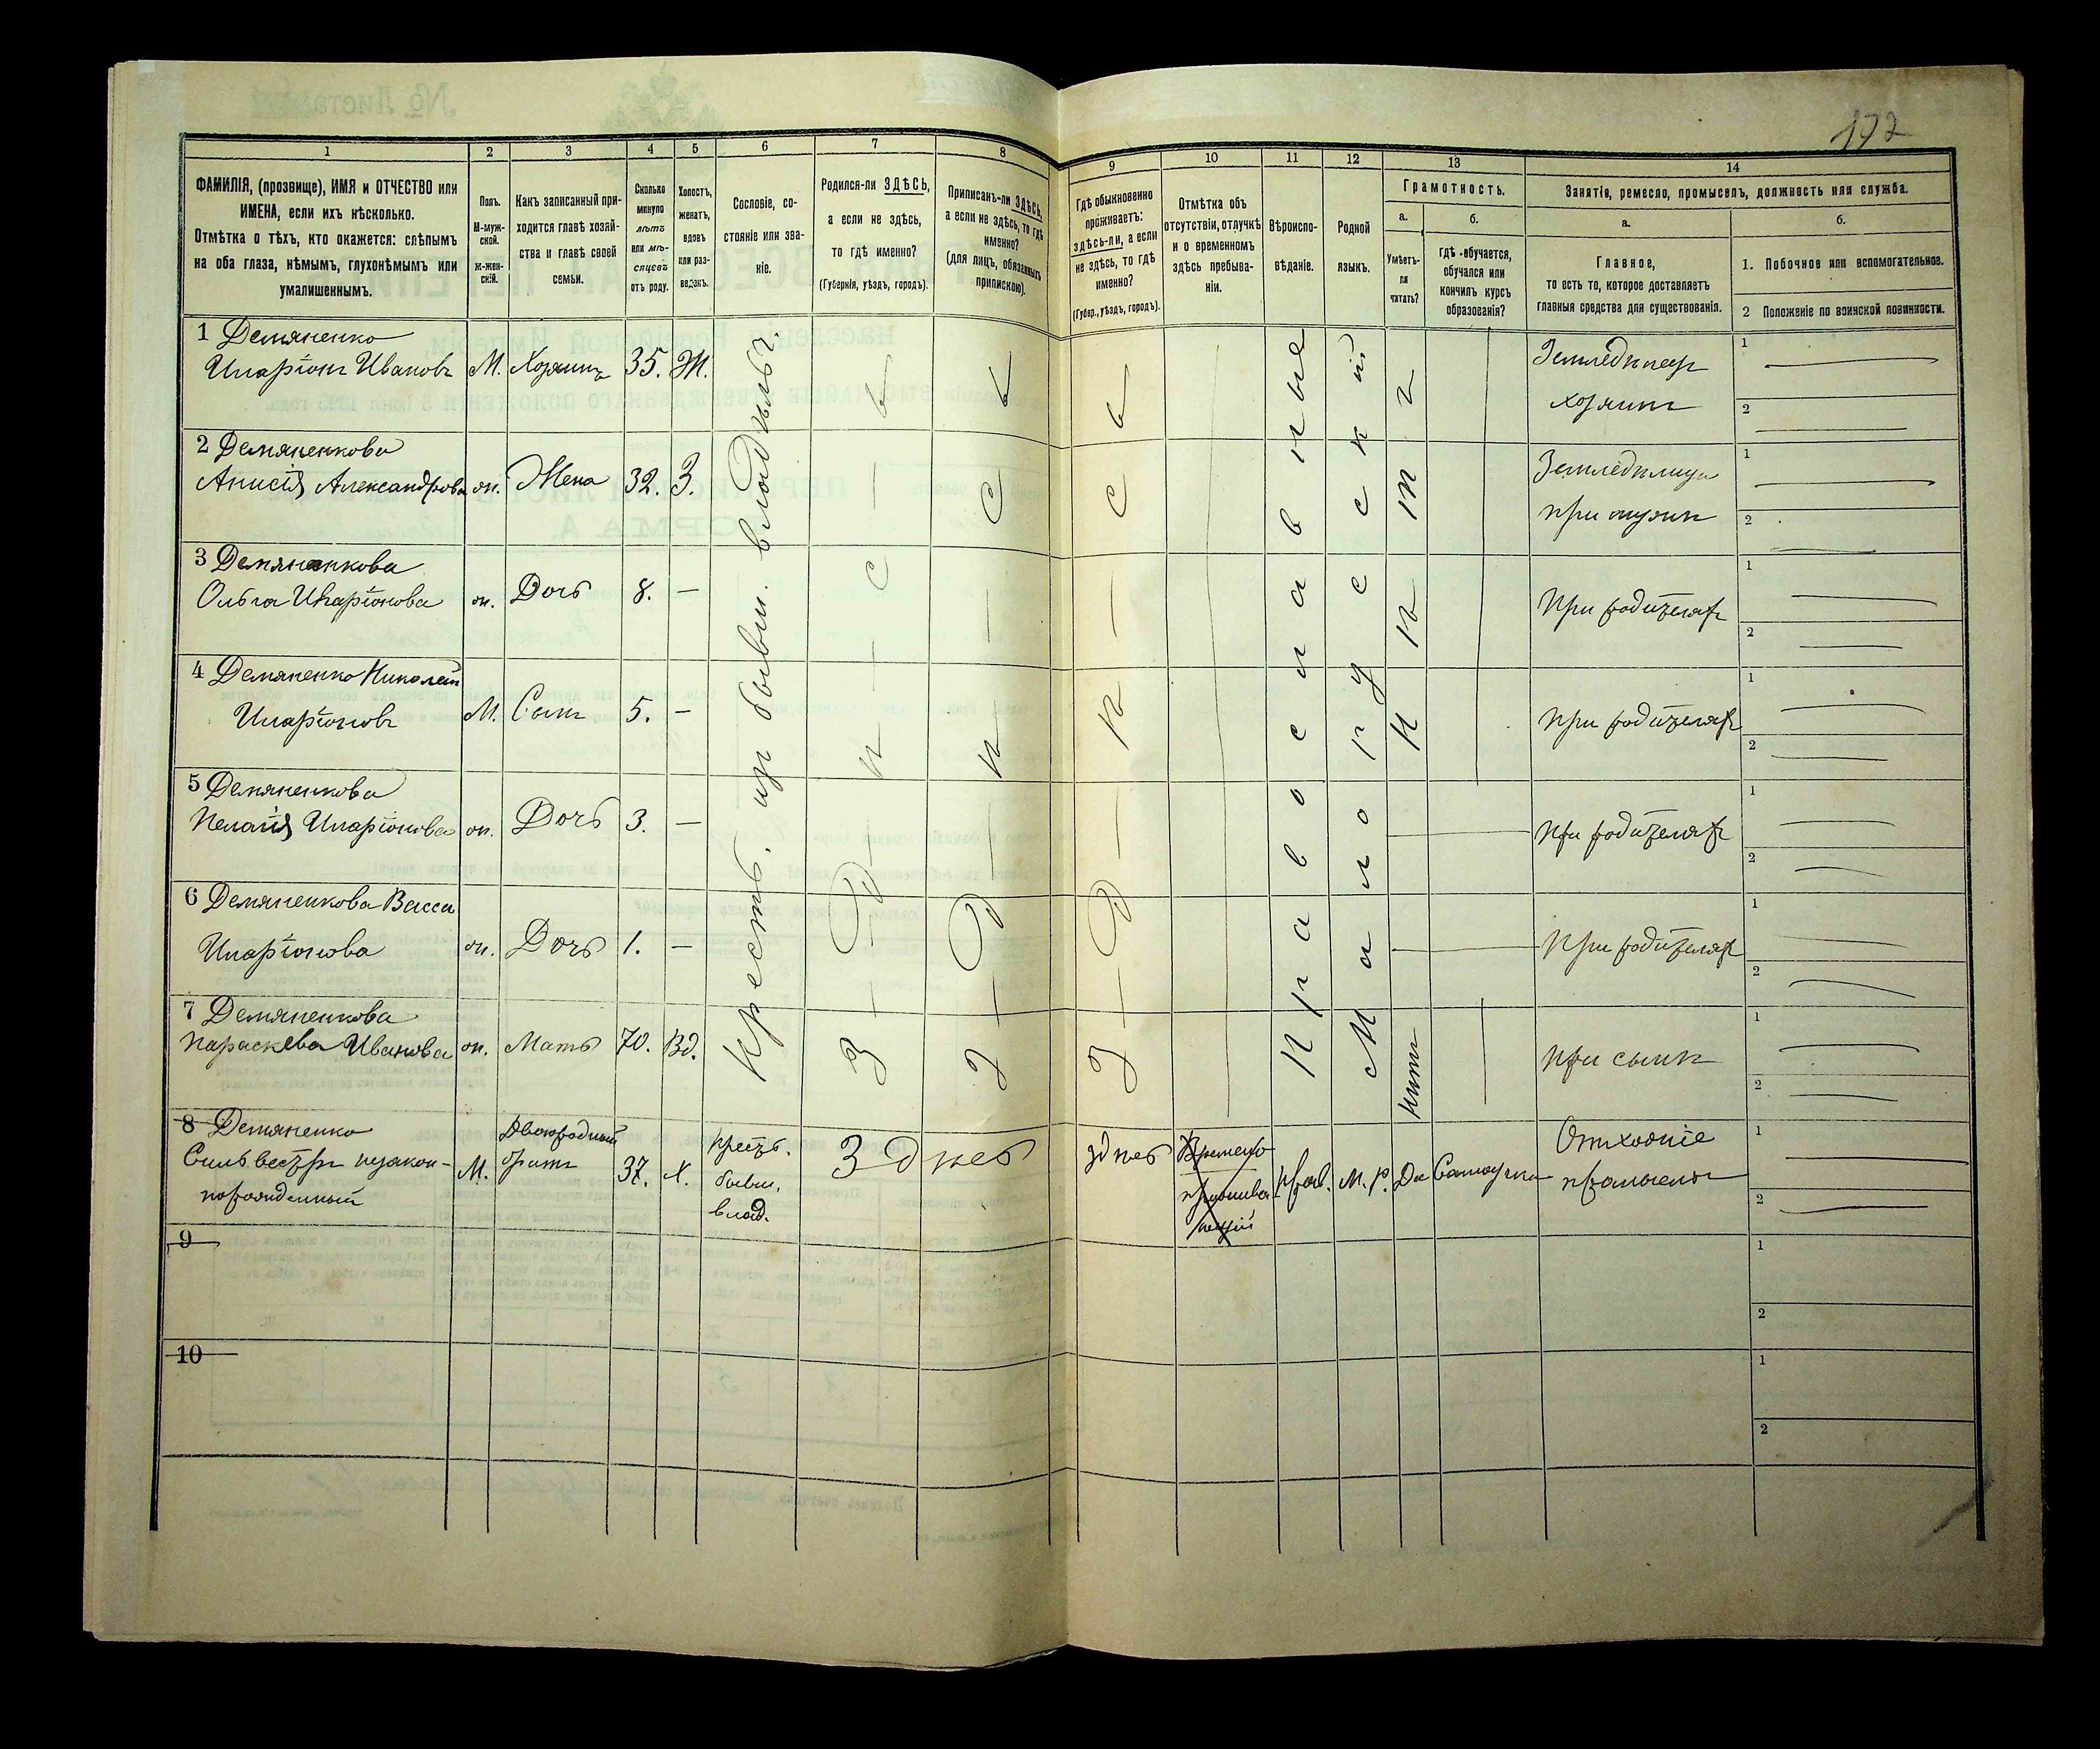 177
1 2 3 4 5 6 7 8 9 10 11 12 13 14
ФАМИЛІЯ, (прозвище), ИМЯ и ОТЧЕСТВО или
ИМЕНА, если ихъ нѣсколько.
Отмѣтка о тѣхъ, кто окажется: слѣпымъ
на оба глаза, нѣмымъ, глухонѣмымъ или
умалишеннымъ.
Полъ.
М-муж-
ской.
Ж-жен-
скій.
Какъ записанный при-
ходится главѣ хозяй-
ства и главѣ своей
семьи.
Сколько
минуло
лѣтъ
или мѣ-
сяцевъ
отъ роду.
Холостъ,
женатъ,
вдовъ
или раз-
веденъ.
Сословіе, со-
стояніе или зва-
ніе.
Родился-ли ЗДѢСЬ,
а если не здѣсь,
то гдѣ именно?
(Губернія, уѣздъ, городъ).
Приписанъ-ли ЗДѢСЬ,
а если не здѣсь, то гдѣ
именно?
(Для лицъ, обязанныхъ
припискою).
Гдѣ обыкновенно
проживаетъ:
здѣсь-ли, а если
не здѣсь, то гдѣ
именно?
(Губер., уѣздъ, городъ).
Отмѣтка объ
отсутствіи, отлучкѣ
и о временномъ
здѣсь пребыва-
ніи.
Вѣроиспо-
вѣданіе.
Родной
языкъ.
Грамотность.
а.
Умѣетъ-
ли
читать?
б.
Гдѣ обучается,
обучался или
кончилъ курсъ
образованія?
Занятія, ремесло, промыселъ, должность или служба.
а.
Главное,
то есть то, которое доставляетъ
главныя средства для существованія.
б.
1. Побочное или вспомогательное.
2 Положеніе по воинской повинности.
1 Демяненко
Иларіонъ Ивановъ М. Хозяинъ 35. Ж.
Землѣделецъ
хозяинъ
1
2
2 Демяненкова
Анисія Александрова ж. Жена 32. З.
при мужѣ
1
2
3 Демяненкова
Ольга Иларіонова ж. Дочь 8. —
При родителяхъ
1
2
4 Демяненко Николай
Иларіоновъ М. Сынъ 5. —
При родителяхъ
1
2
5 Демяненкова
Пелагія Иларіонова ж. Дочь 3. —
при родителяхъ
1
2
6 Демяненкова Васса
Иларіонова ж. Дочь 1. —
При родителяхъ
1
2
7 Демяненкова
Параскева Иванова ж. Мать 70. Вд.
при сынѣ
1
2
Крестъ. изъ бывш. владѣльч.
Здѣсь
Здѣсь
Здѣсь
Православные
Малорусскій
Нѣтъ
8 Демяненко
Сильвестръ незакон-
норожденный
М. Двоюродный
братъ 37. Х.
крест.
бывш.
влад.
Здѣсь
здѣсь
Временно
Прав. М. р. Да Самоучка
Отхожіе
промыслы
1
2
9
1
2
10
1
2